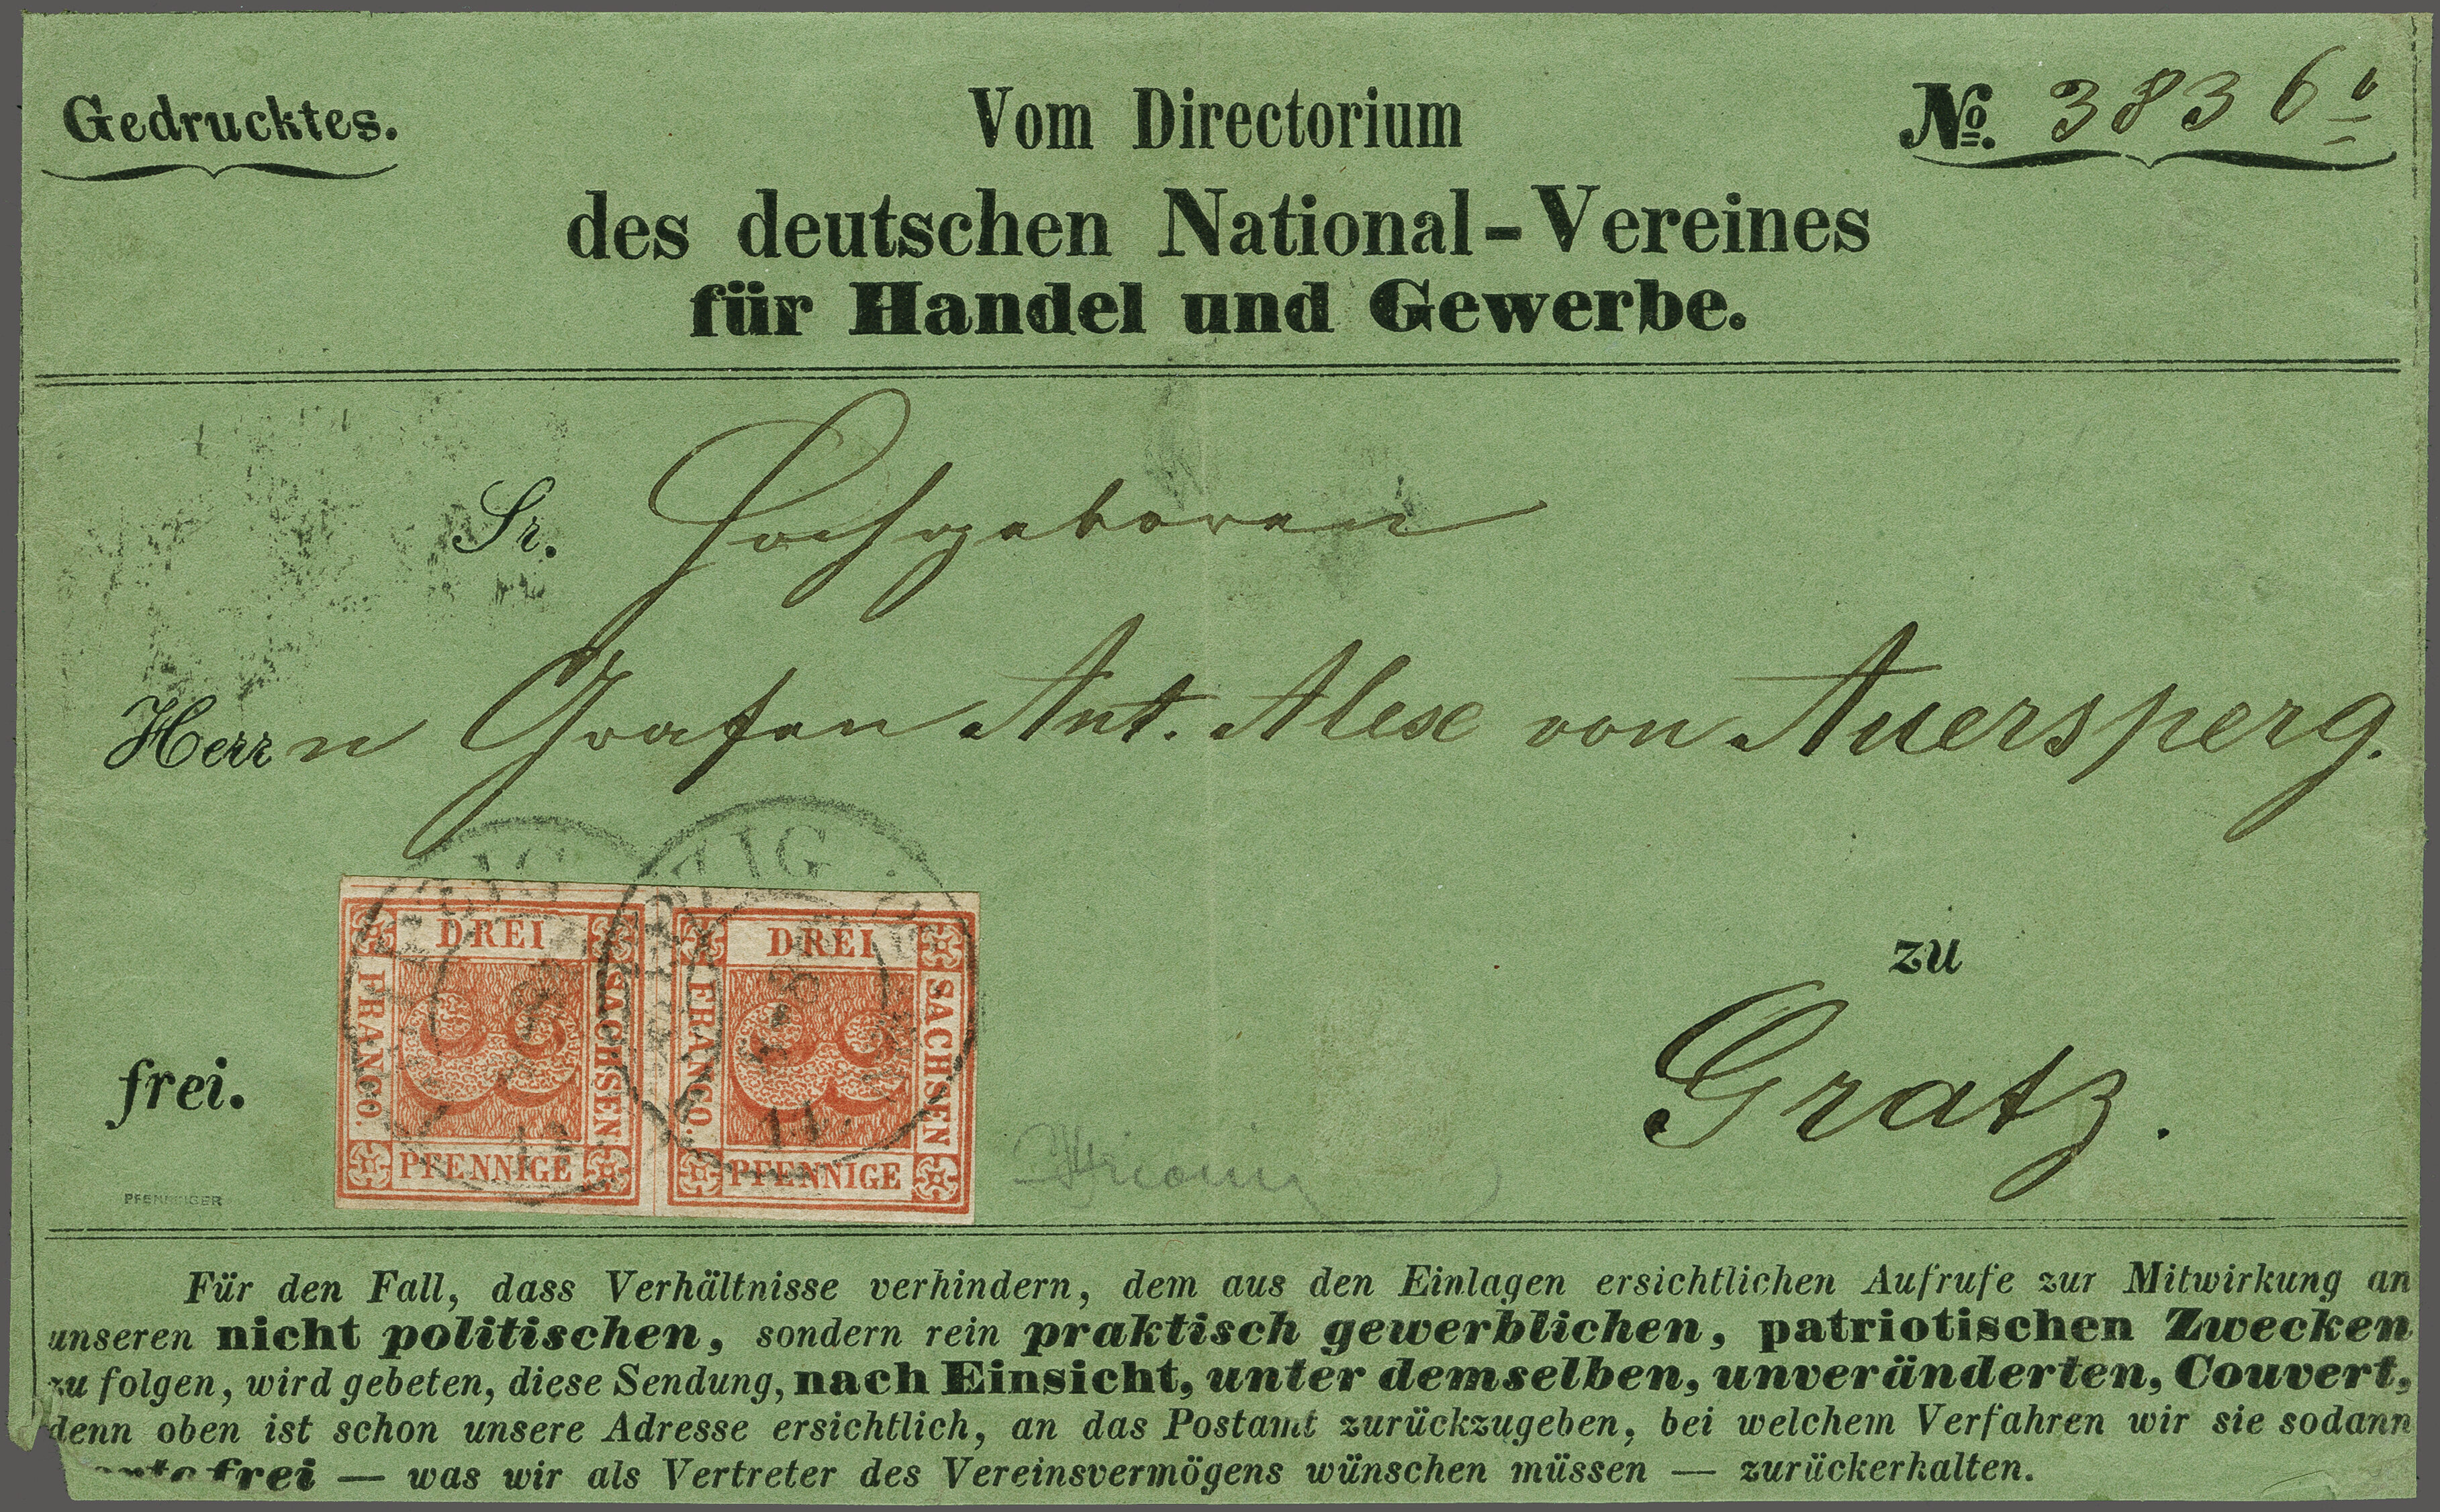 Gedrucktes.
Vom Directorium
No. 3836b
des deutschen National-Vereines
für Handel und Gewerbe.
Sr. Hochgeboren
Herrn Grafen Ant. Alex von Auersperg.
zu
Gratz.
frei.
DREI
FRANCO.
SACHSEN
3
PFENNIGE
DREI
FRANCO.
SACHSEN
3
PFENNIGE
PFENNINGER
Für den Fall, dass Verhältnisse verhindern, dem aus den Einlagen ersichtlichen Aufrufe zur Mitwirkung an
unseren nicht politischen, sondern rein praktisch gewerblichen, patriotischen Zwecken
zu folgen, wird gebeten, diese Sendung, nach Einsicht, unter demselben, unveränderten, Couvert,
denn oben ist schon unsere Adresse ersichtlich, an das Postamt zurückzugeben, bei welchem Verfahren wir sie sodann
frei — was wir als Vertreter des Vereinsvermögens wünschen müssen — zurückerhalten.